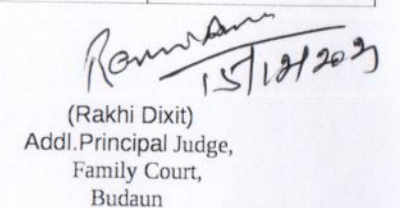 15/12/2023
(Rakhi Dixit)
Addl.Principal Judge,
Family Court,
Budaun